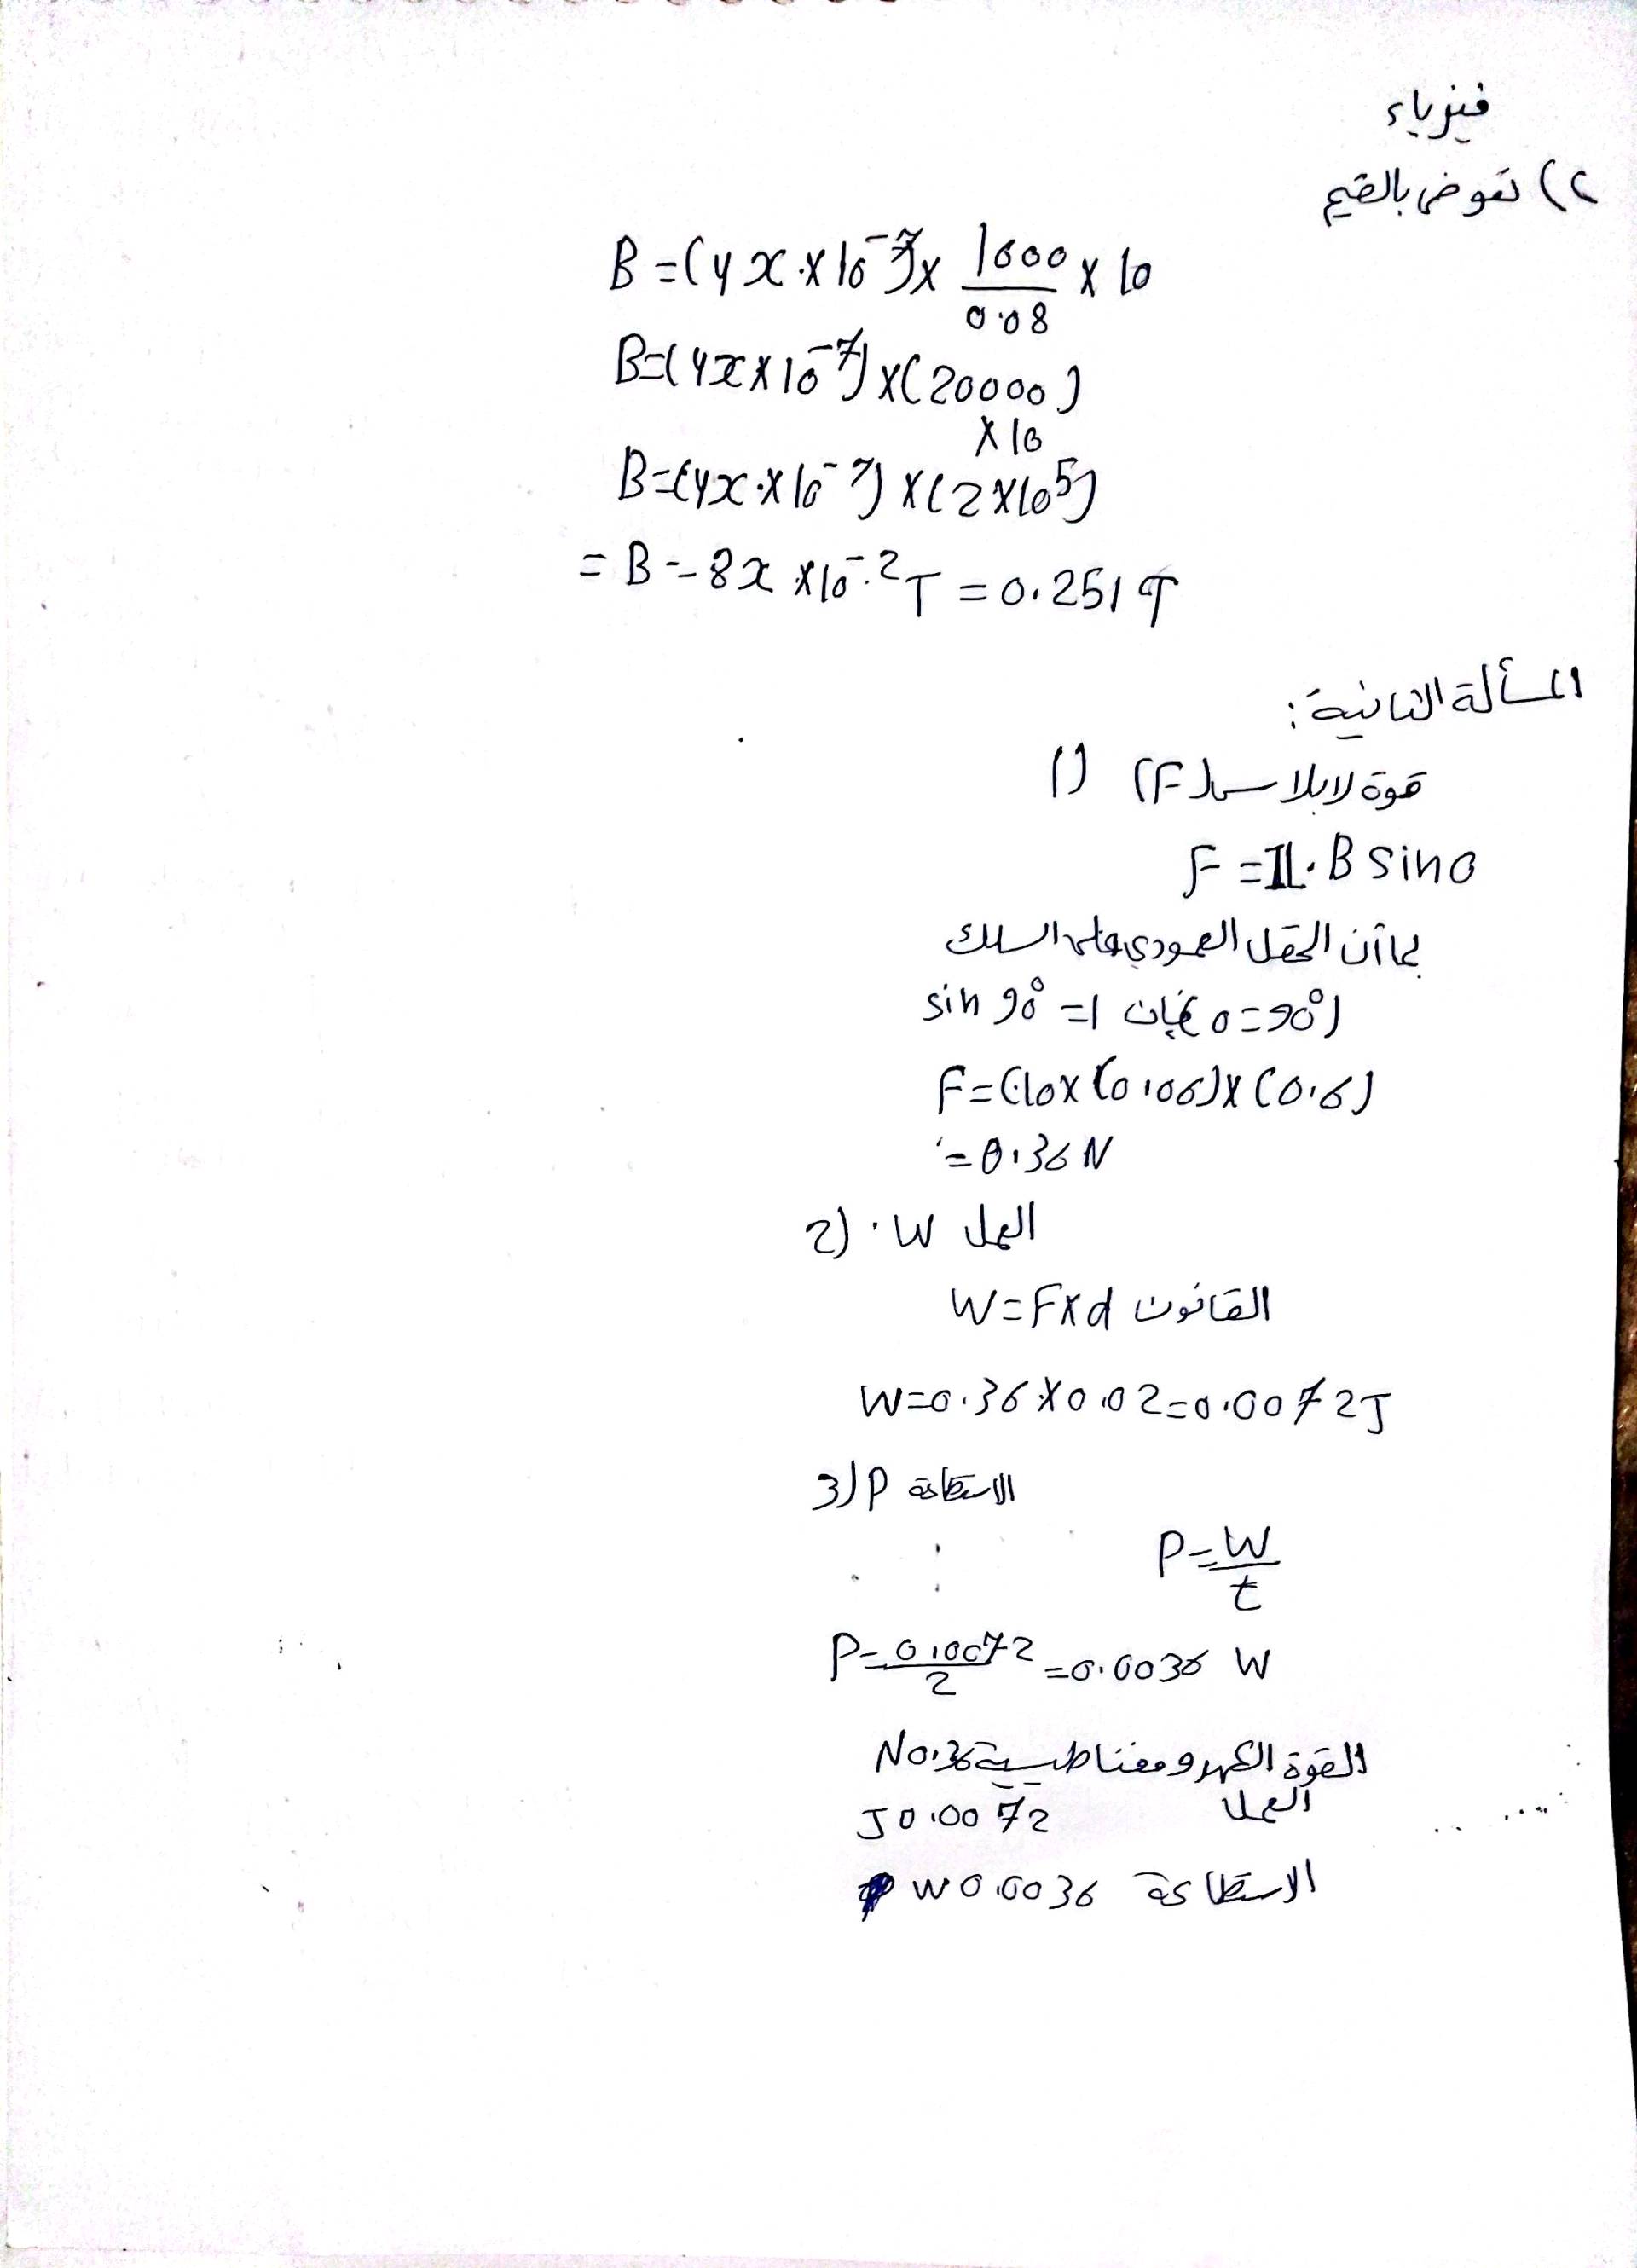 فيزياء
٢) نعوض بالقيم
B=(4x×10⁻⁷)× 1600/0.08 ×10
B=(4x×10⁻⁷)×(20000)
×10
B=(4x×10⁻⁷)×(2×10⁵)
= B=8x×10⁻²T=0.251T
المسألة الثانية:
1) قوة لابلاس (F)
F=IL·B sin0
بما أن الحقل العمودي على السلك
(0=90°) فإن sin 90°=1
F=(10×(0.06)×(0.6)
=0.36N
2) W العمل
القانون W=F×d
W=0.36×0.02=0.0072J
3) P الاستطاعة
P=W/t
P=0.0072/2=0.0036 W
القوة الكهرومغناطيسية N0.36
العمل J0.0072
الاستطاعة W0.0036